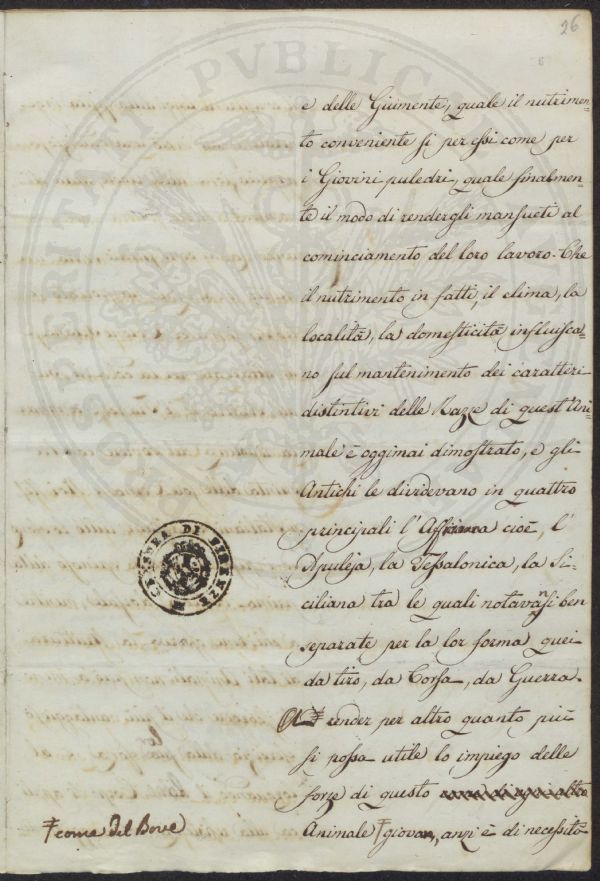 26
e delle Giumente, quale il nutrimen-
to conveniente sì per essi come per
i Giovini puledri, quale finalmen-
te il modo di rendergli mansueti al
cominciamento del loro lavoro. Che
il nutrimento in fatti, il clima, la
località, la domesticità influisca-
no sul mantenimento dei caratteri
distintivi delle Razze di quest'Ani-
male è oggimai dimostrato, e gli
Antichi le dividevano in quattro
principali l'Affricana cioè, l'
Apuleja, la Tessalonica, la Si-
ciliana tra le quali notavansi ben
separate per la lor forma quei
da tiro, da Corsa, da Guerra.
A render per altro quanto più
si possa utile lo impiego delle
forze di questo
Animale giovan, anzi è di necessità
come del Bove
CENSURA DI FIRENZE